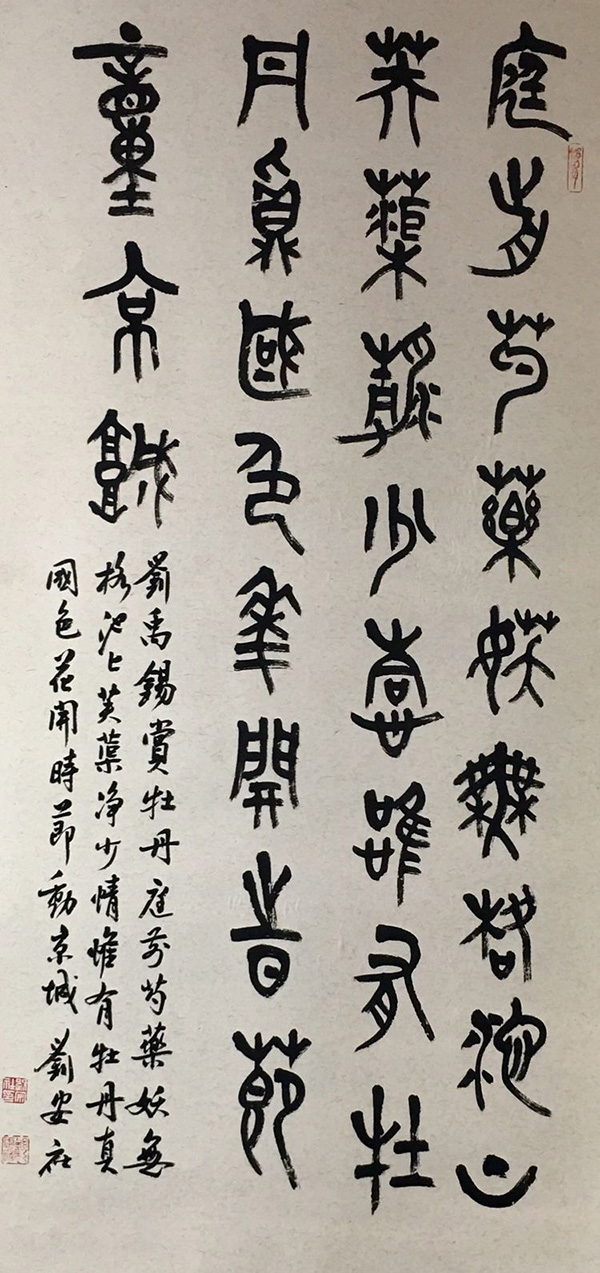 庭前芍藥妖無格池上
芙蕖靜少情唯有牡
丹真國色華開時節
動京城
劉禹錫賞牡丹庭前芍藥妖無
格池上芙蕖净少情惟有牡丹真
國色花開時節動京城 劉安社